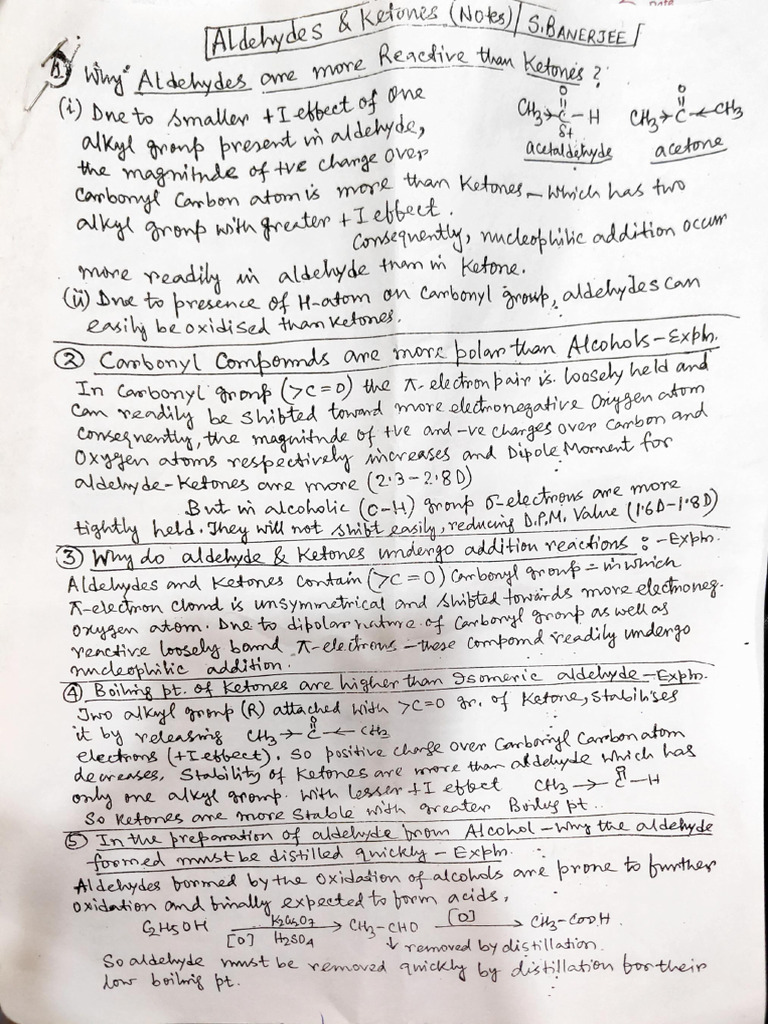 Aldehydes & Ketones (Notes) / S.BANERJEE /
① Why Aldehydes are more Reactive than Ketones ?
(i) Due to smaller +I effect of one
alkyl group present in aldehyde,
the magnitude of +ve charge over
Carbonyl Carbon atom is more than Ketones – which has two
alkyl group with greater +I effect.
O O
CH3→C–H CH3→C←CH3
δ+
acetaldehyde acetone
Consequently, nucleophilic addition occur
more readily in aldehyde than in Ketone.
(ii) Due to presence of H-atom on Carbonyl group, aldehydes can
easily be oxidised than Ketones.
② Carbonyl Compounds are more polar than Alcohols – Expln.
In Carbonyl group (>C=O) the π-electron pair is loosely held and
Can readily be shifted toward more electronegative Oxygen atom
Consequently, the magnitude of +ve and -ve charges over Carbon and
Oxygen atoms respectively increases and Dipole Moment for
aldehyde-Ketones are more (2.3–2.8D)
But in alcoholic (O–H) group σ-electrons are more
tightly held. They will not shift easily, reducing D.P.M. Value (1.6D–1.8D)
③ Why do aldehyde & Ketones undergo addition reactions : – Expln.
Aldehydes and Ketones Contain (>C=O) Carbonyl group = in which
π-electron cloud is unsymmetrical and shifted towards more electroneg.
oxygen atom. Due to dipolar nature of Carbonyl group as well as
reactive loosely bound π-electrons – these Compound readily undergo
nucleophilic addition.
④ Boiling pt. of Ketones are higher than Isomeric aldehyde – Expln.
Two alkyl group (R) attached with >C=O gr. of Ketone, stabilises
it by releasing CH3→C←CH3
O
electrons (+I effect). So positive charge over Carbonyl Carbon atom
decreases. Stability of Ketones are more than aldehyde which has
only one alkyl group. with lesser +I effect CH3→C–H
O
So Ketones are more stable with greater Boiling pt..
⑤ In the preparation of aldehyde from Alcohol – why the aldehyde
formed must be distilled quickly – Expln.
Aldehydes formed by the Oxidation of alcohols are prone to further
oxidation and finally expected to form acids.
C2H5OH K2Cr2O7 → CH3–CHO [O] → CH3–COOH.
[O] H2SO4 ↓ removed by distillation.
So aldehyde must be removed quickly by distillation for their
low boiling pt.